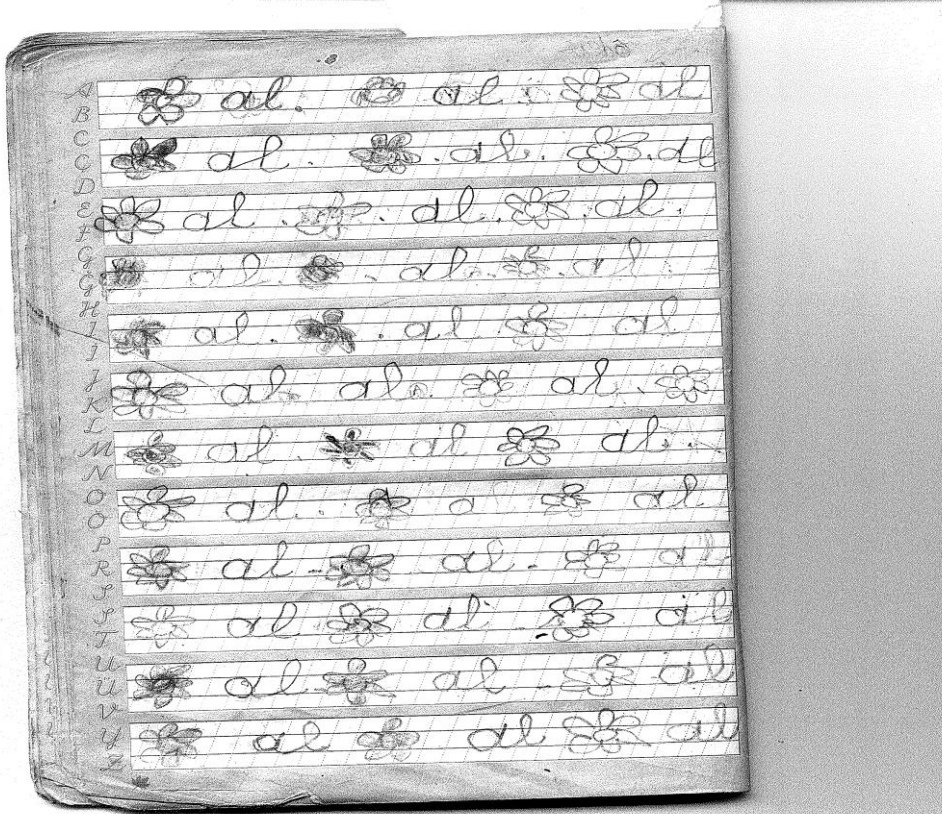 A
B
C
Ç
D
E
F
G
Ğ
H
I
İ
J
K
L
M
N
O
Ö
P
R
S
Ş
T
U
Ü
V
Y
Z
al. al. al
al. al. al
al. al. al.
al. al. al
al. al al
al. al. al.
al. al al.
al. a al
al. al. al
al al al
al. al. al
al al al